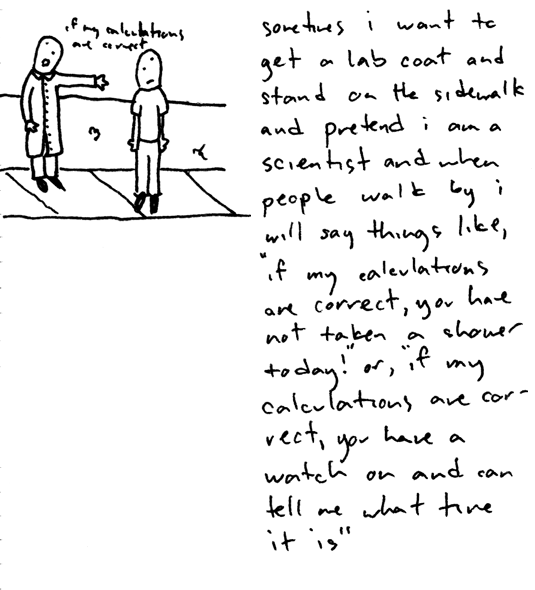 if my calculations
are correct
sometimes i want to
get a lab coat and
stand on the sidewalk
and pretend i am a
scientist and when
people walk by i
will say things like,
"if my calculations
are correct, you have
not taken a shower
today!" or, "if my
calculations are cor-
rect, you have a
watch on and can
tell me what time
it is"